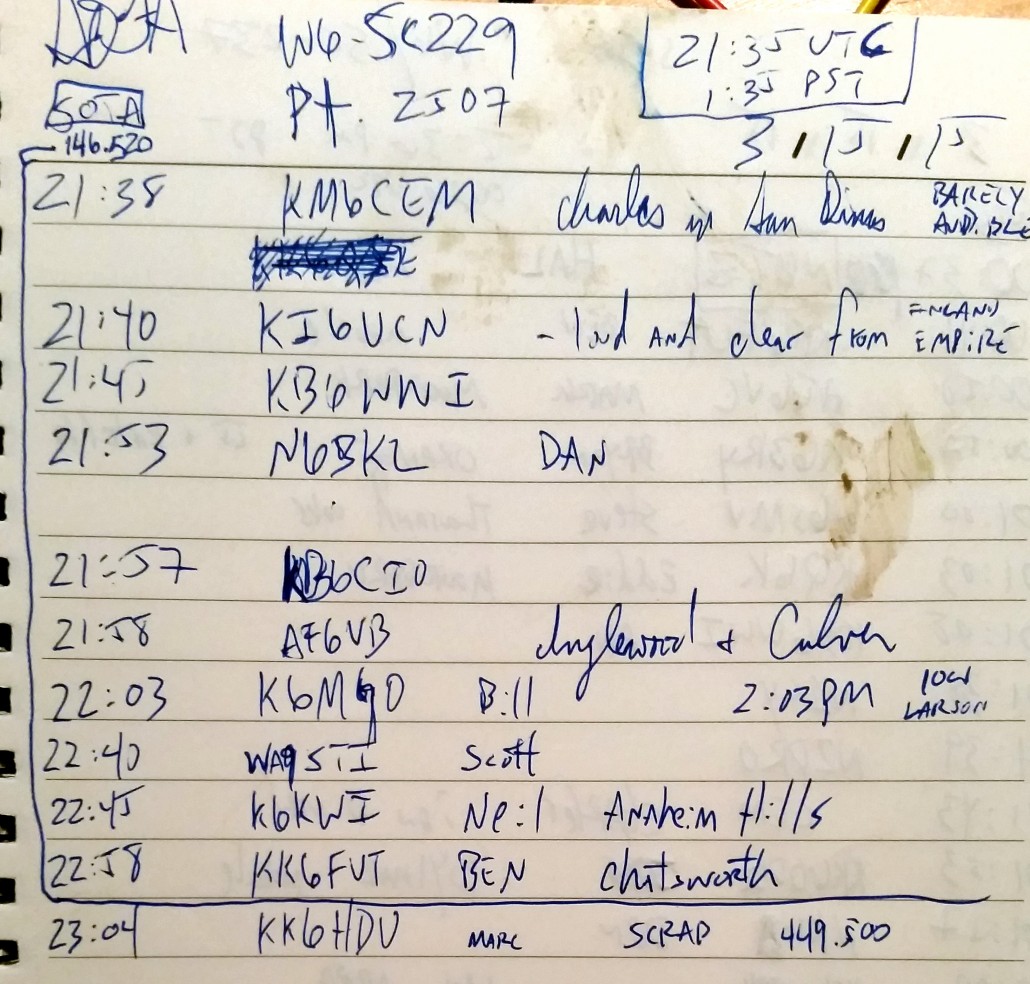 W6-SC229
21:35 UTC
1:35 PST
SOTA
Pt. 2507
146.520
3 , 15 , 15
21:38 KM6CEM Charles in San Dimas BARELY AUDIBLE
21:40 KI6UCN - loud AND clear from INLAND EMPIRE
21:45 KB6WWI
21:53 N6BKL DAN
21:57 KB6CIO
21:58 AF6VB Inglewood + Culver
22:03 K6MGO Bill 2:03PM LARSON
22:40 WA9STI Scott
22:45 K6KWI Neil Annheim Hills
22:58 KK6FUT BEN Chitsworth
23:04 KK6HDU MARC SCRAP 449.500